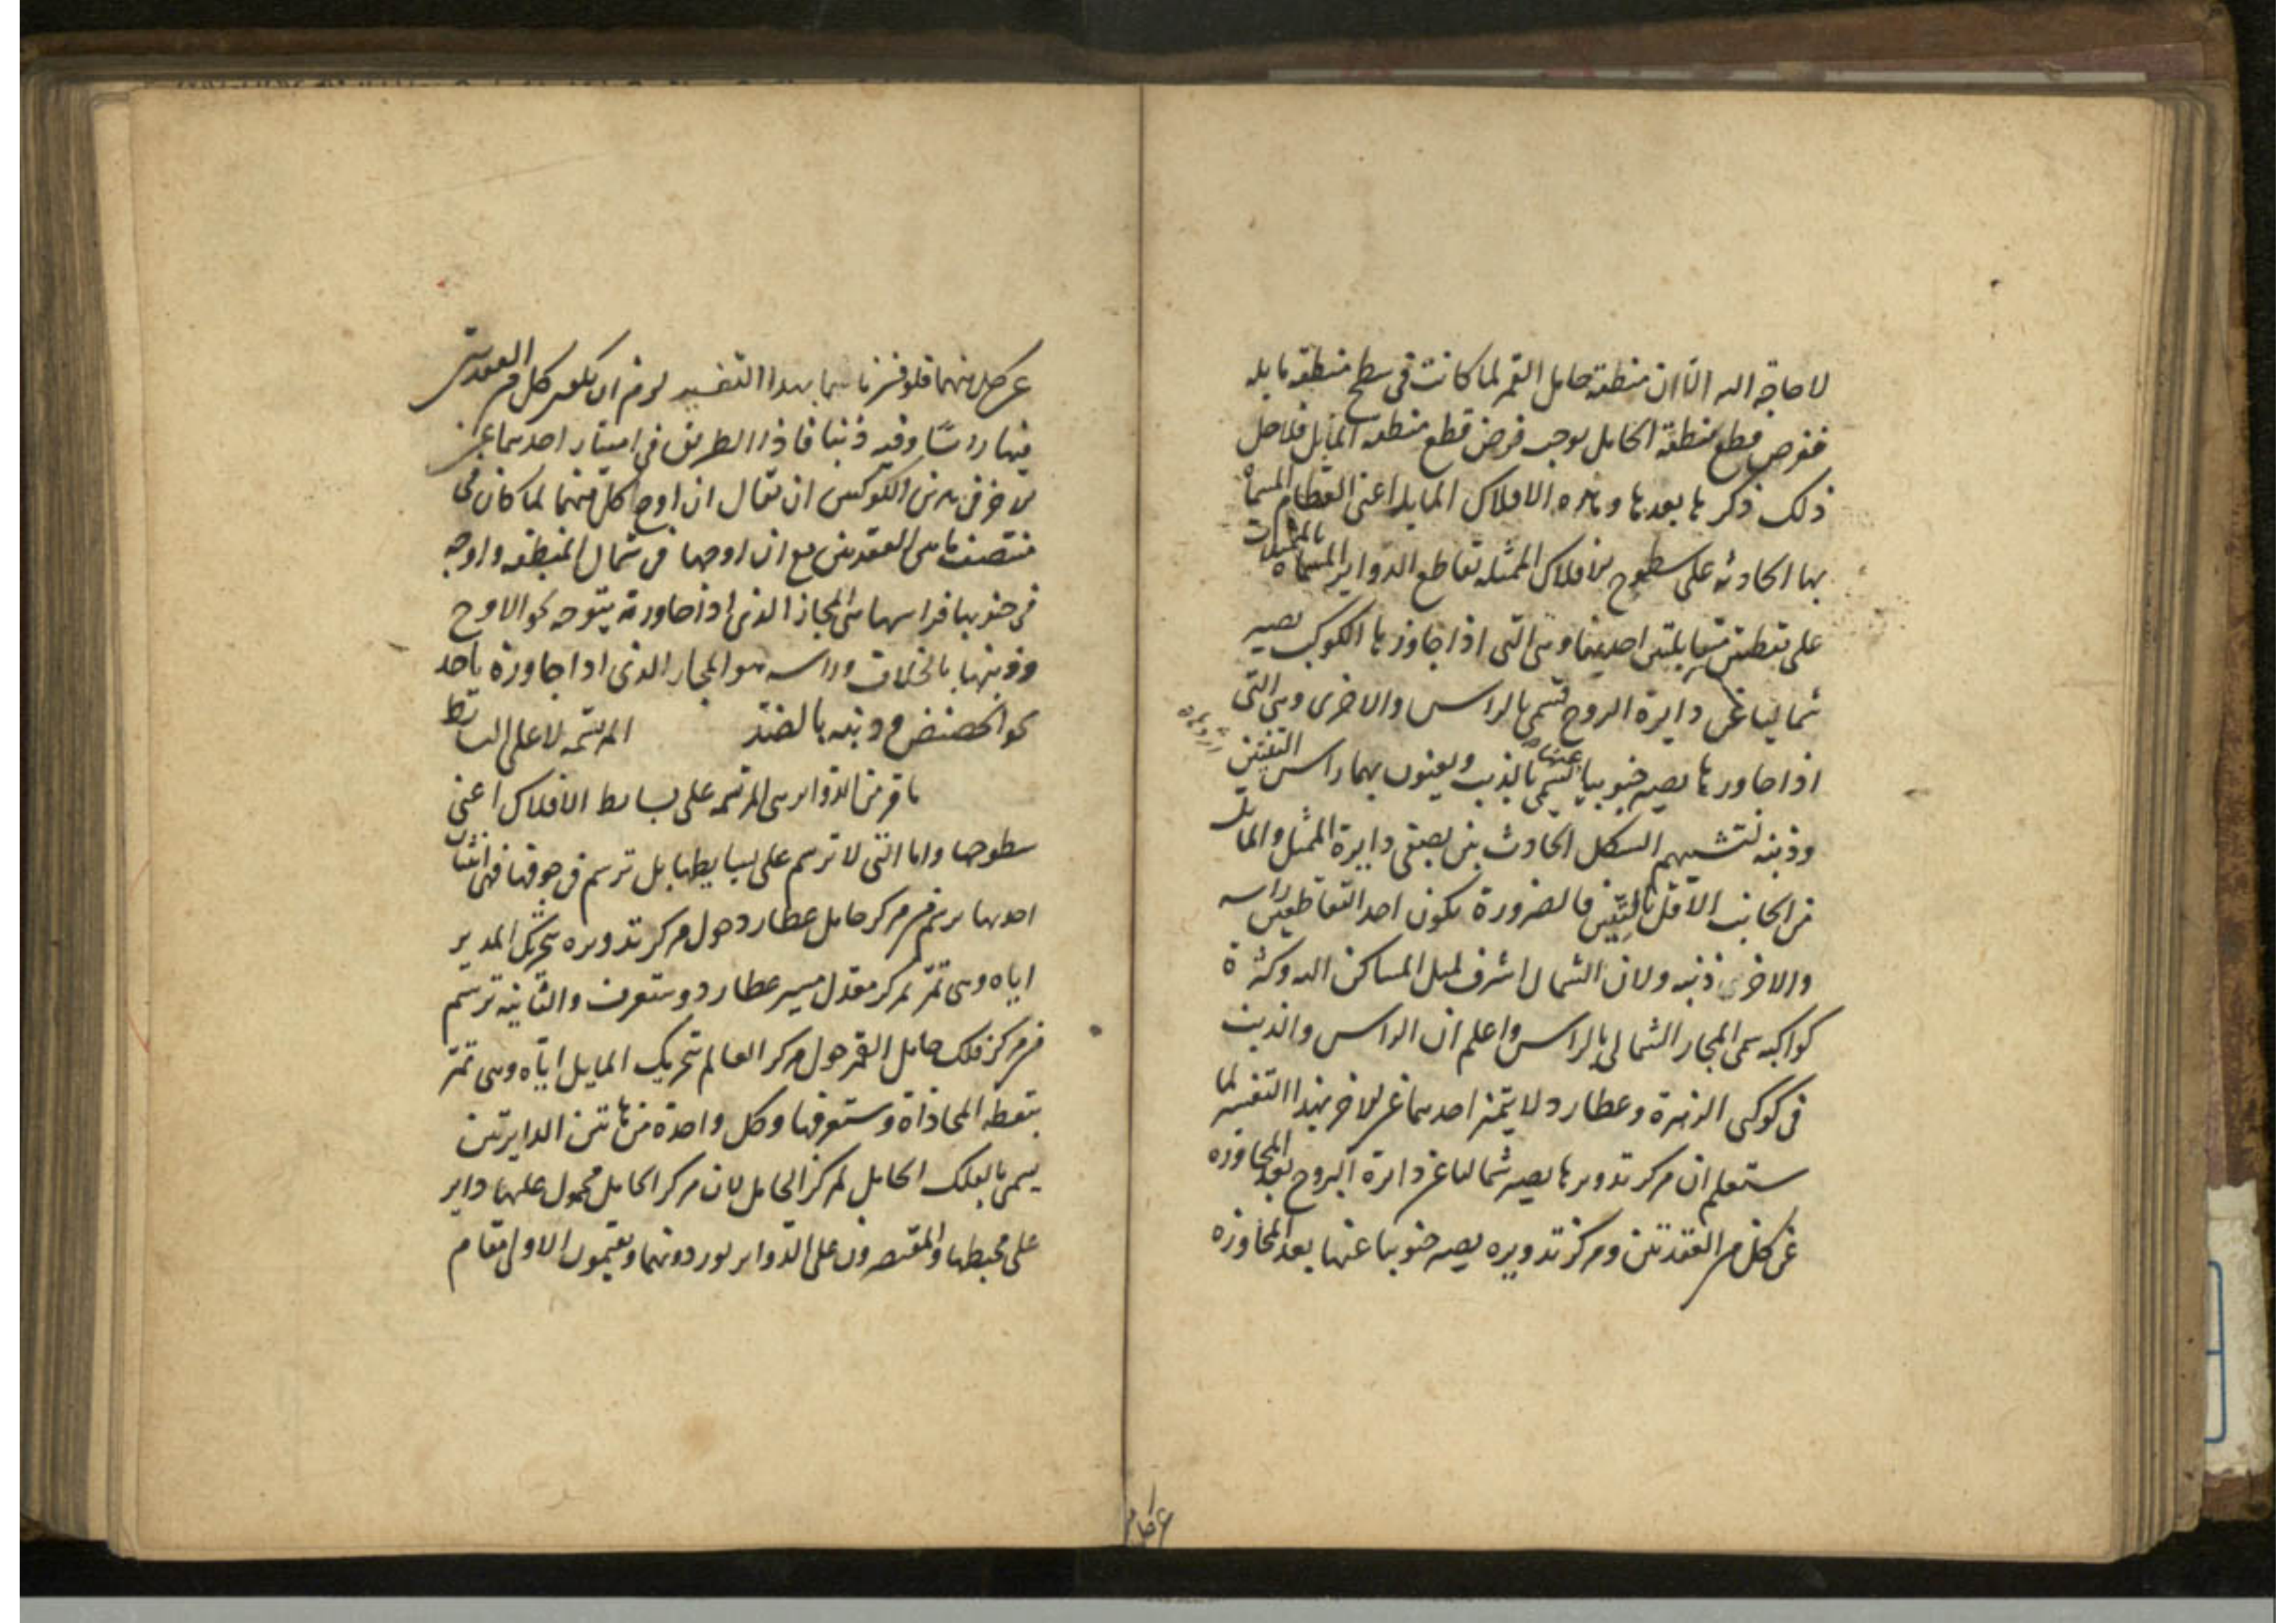 لا حاجة اليه الا ان منطقة حامل القمر لما كانت في سطح منطقة مايله
ففرض قطع منطقة الحامل يوجب فرض قطع منطقة المايل فلاجل
ذلك ذكرها بعدها وهذه الافلاك المايلة اعنى العظام المسماة
بها الحادثة على سطوح الافلاك الممثله تقاطع الدواير المسماة بالممثلات
على نقطتين متقابلتين احديهما وهى التى اذا جاوزها الكوكب يصير
شماليا عن دايرة البروج تسمى بالراس والاخرى وهى التى
اذا جاوزها يصير جنوبيا عنها تسمى بالذنب ويعنون بهما راس التنين
وذنبه لتشبيههم الشكل الحادث بين نصفى دايرة الممثل والمايل
من الجانب الاقل بالتنين فبالضرورة يكون احد التقاطعين راسه
والاخرى ذنبه ولان الشمال اشرف لميل المساكن اليه وكثرة
كواكبه سمى المجاز الشمالى بالراس واعلم ان الراس والذنب
فى كوكبى الزهرة وعطارد لا يتميز احدهما عن الاخر بهذا التفسير لما
ستعلم ان مركز تدويرها يصير شماليا عن دايرة البروج بعد المجاوزه
عن كل من العقدتين ومركز تدويره يصير جنوبيا عنها بعد المجاوزه
عن كل منهما فلو فسرناهما بهذا التفسير لزم ان يكون كل من العقدتين
فيها راسًا وفيه ذنبا فاذا الطريق فى امتياز احدهما عن
الاخر فى هذين الكوكبين ان يقال ان اوج كل منهما لما كان فى
منتصف ما بين العقدتين مع ان اوجها فى شمال المنطقه واوجه
فى جنوبها فراسها هى المجاز الذى اذا جاوزته يتوجه نحو الاوج
وذنبها بالخلاف وراسه هو المجاز الذى اذا جاوزه ياخذ
نحو الحضيض وذنبه بالضد المرتسمه لا على البسايط
ما مر من الدواير هى المرتسمه على بسايط الافلاك اعنى
سطوحها واما التى لا ترسم على بسايطها بل ترسم فى جوفها فهى اثنتان
احديها يرسم من مركز حامل عطارد حول مركز تدويره بتحريك المدير
اياه وهى تمر بمركز معدل مسير عطارد وستعرف والثانية ترسم
من مركز فلك حامل القمر حول مركز العالم بتحريك المايل اياه وهى تمر
بنقطه المحاذاة وستعرفها وكل واحدة من هاتين الدايرتين
يسمى بالفلك الحامل لمركز الحامل لان مركز الحامل محمول عليها داير
على محيطها والمقتصرون على الدواير يوردونهما ويقيمون الاولى مقام